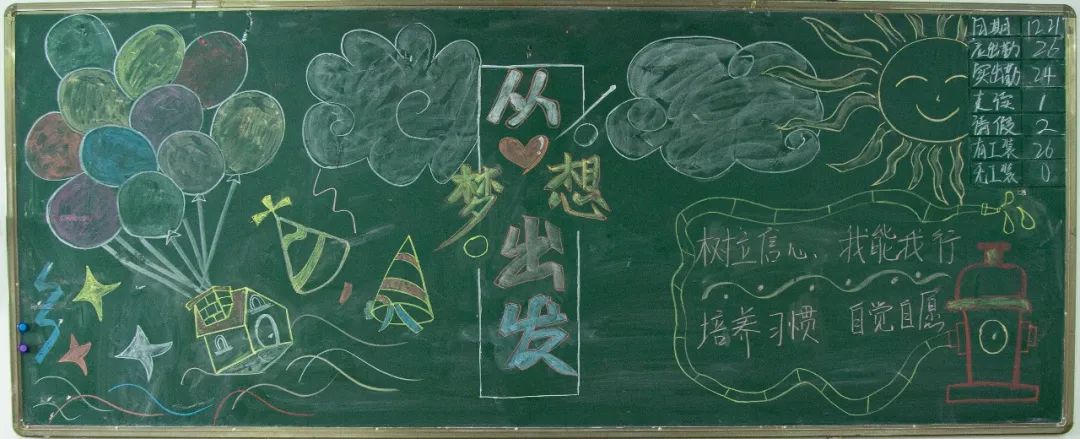 从
梦想
出
发
日期 12.21
应出勤 26
实出勤 24
走读 1
请假 2
有工装 26
无工装 0
树立信心、我能我行
培养习惯 自觉自愿